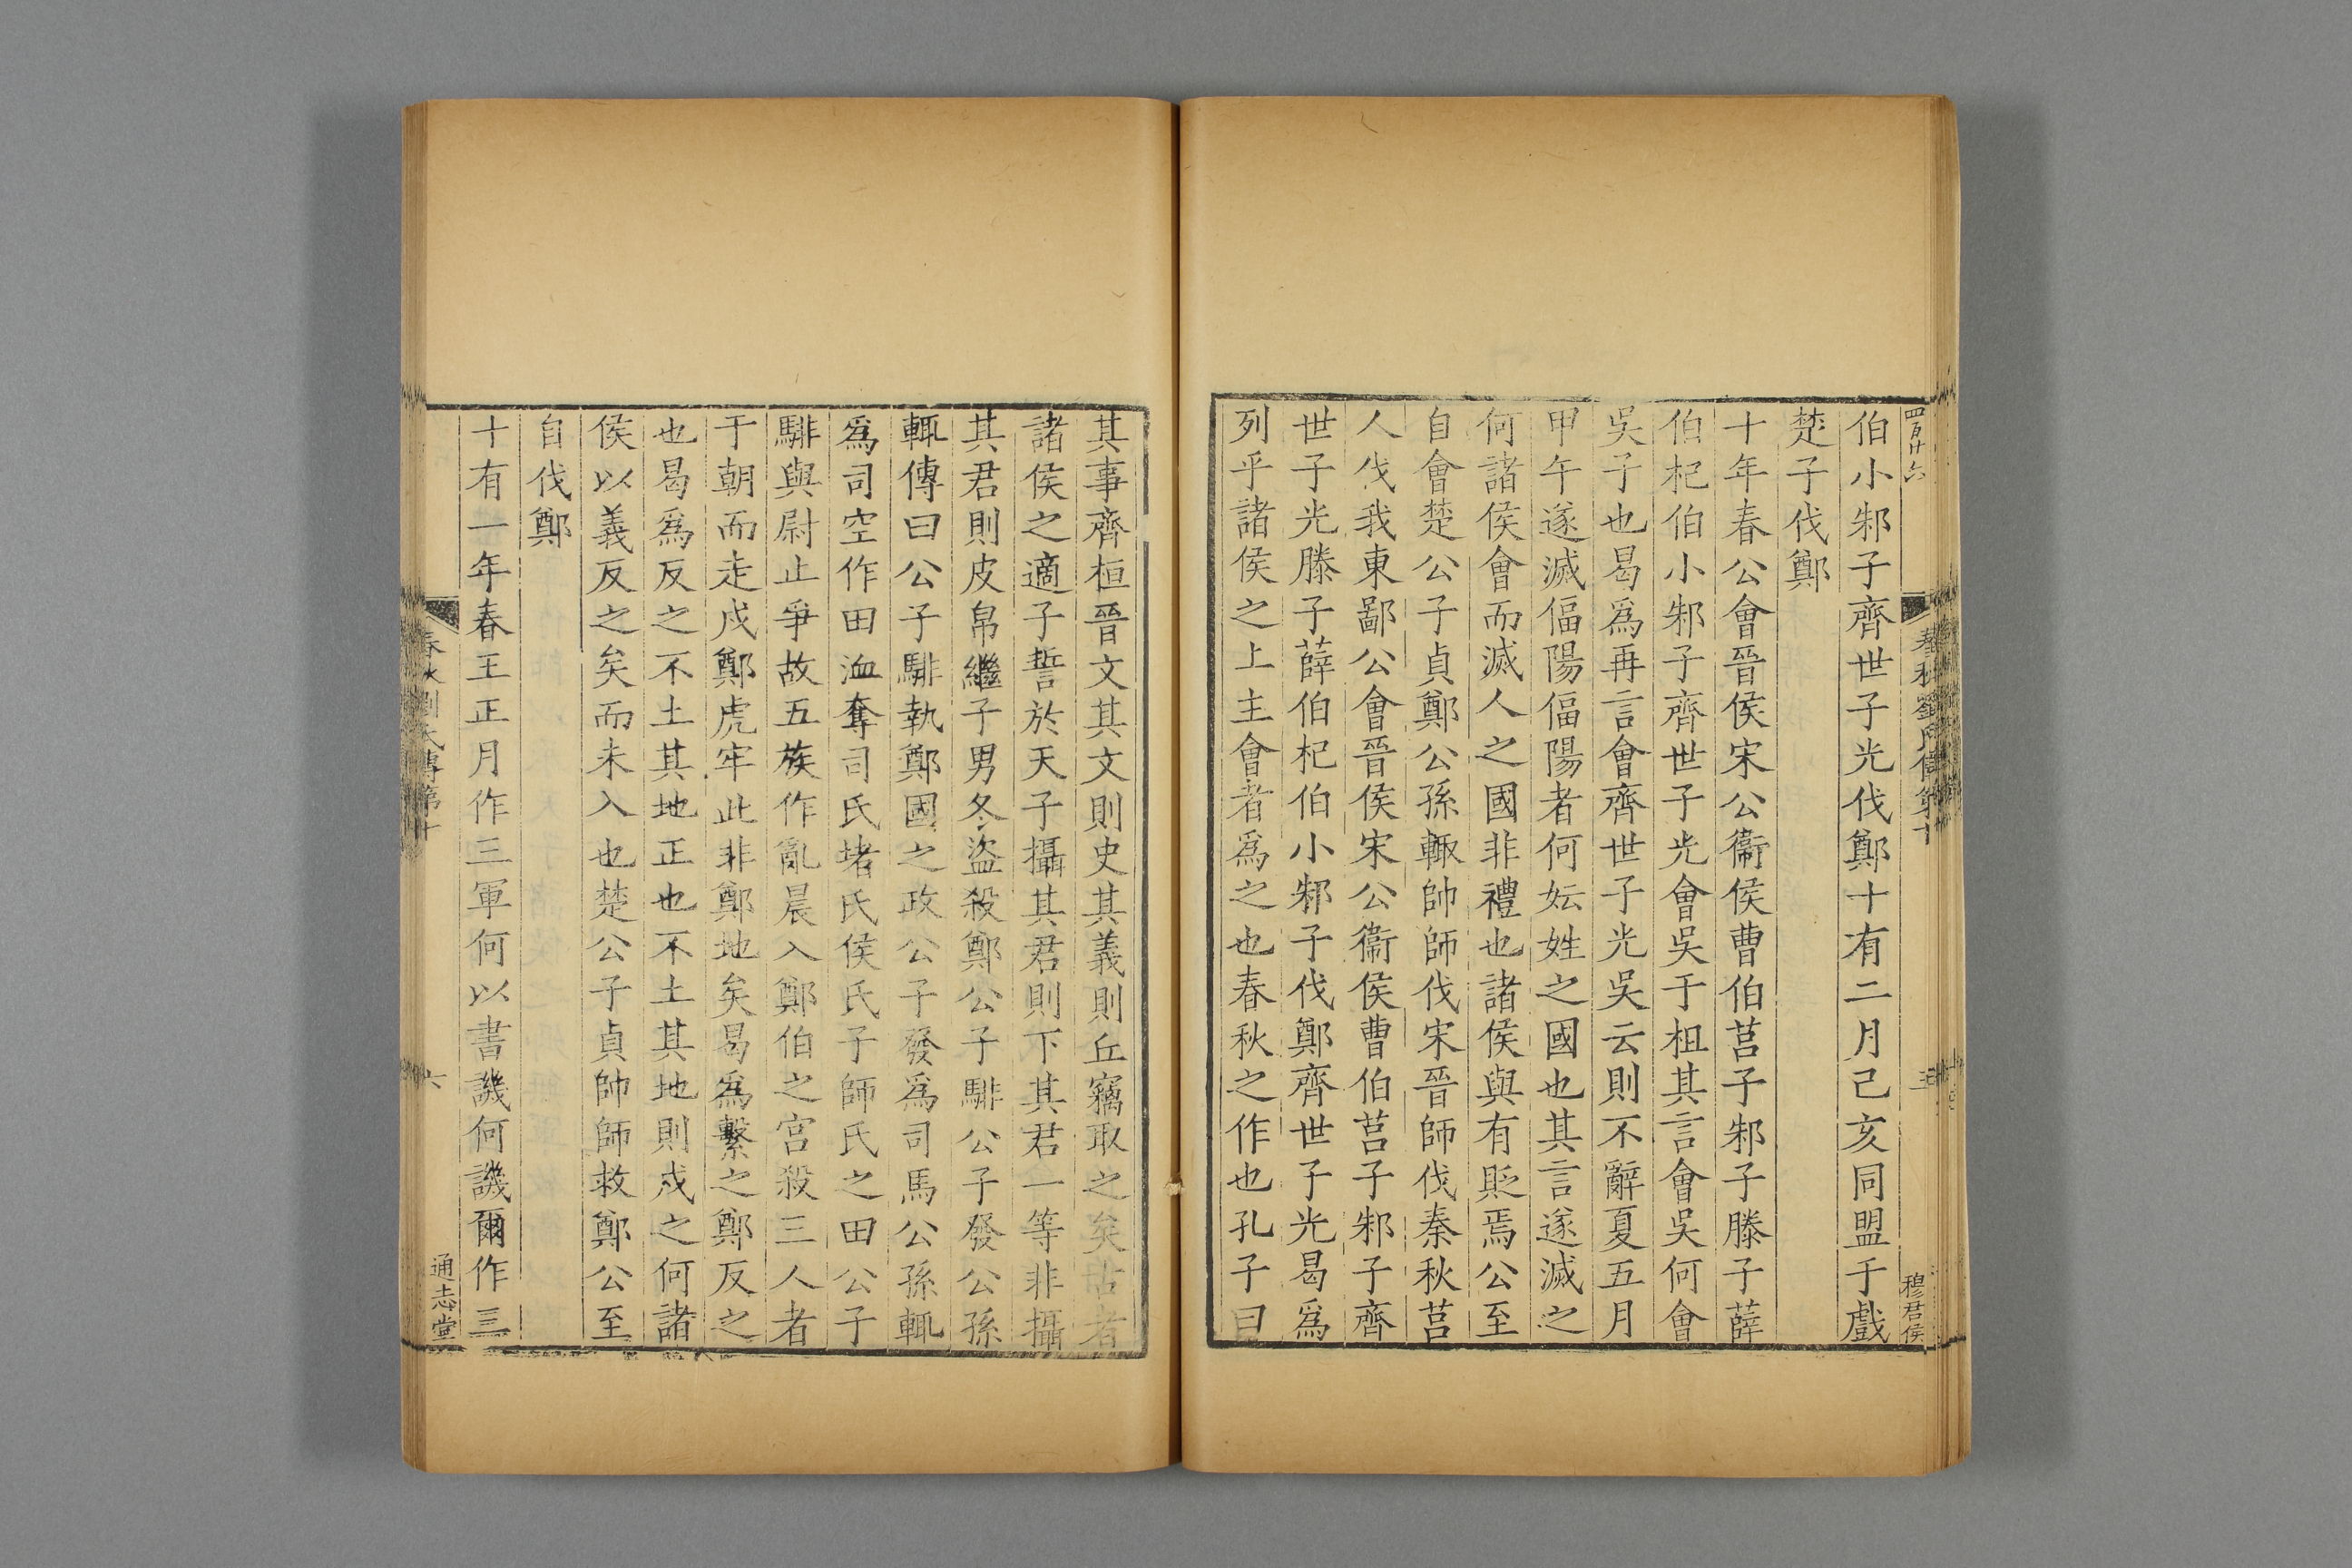 四百廿六
春秋劉氏傳第十
穆君侯
伯小邾子齊世子光伐鄭十有二月己亥同盟于戲
楚子伐鄭
十年春公會晉侯宋公衞侯曹伯莒子邾子滕子薛
伯杞伯小邾子齊世子光會吳于柤其言會吳何會
吳子也曷爲再言會齊世子光吳云則不辭夏五月
甲午遂滅偪陽偪陽者何妘姓之國也其言遂滅之
何諸侯會而滅人之國非禮也諸侯與有貶焉公至
自會楚公子貞鄭公孫輙帥師伐宋晉師伐秦秋莒
人伐我東鄙公會晉侯宋公衞侯曹伯莒子邾子齊
世子光滕子薛伯杞伯小邾子伐鄭齊世子光曷爲
列乎諸侯之上主會者爲之也春秋之作也孔子曰
其事齊桓晉文其文則史其義則丘竊取之矣古者
諸侯之適子誓於天子攝其君則下其君一等非攝
其君則皮帛繼子男冬盜殺鄭公子騑公子發公孫
輙傳曰公子騑執鄭國之政公子發爲司馬公孫輙
爲司空作田洫奪司氏堵氏侯氏子師氏之田公子
騑與尉止爭故五族作亂晨入鄭伯之宮殺三人者
于朝而走戍鄭虎牢此非鄭地矣曷爲繫之鄭反之
也曷爲反之不土其地正也不土其地則戍之何諸
侯以義反之矣而未入也楚公子貞帥師救鄭公至
自伐鄭
十有一年春王正月作三軍何以書譏何譏爾作三
春秋劉氏傳第十
六
通志堂